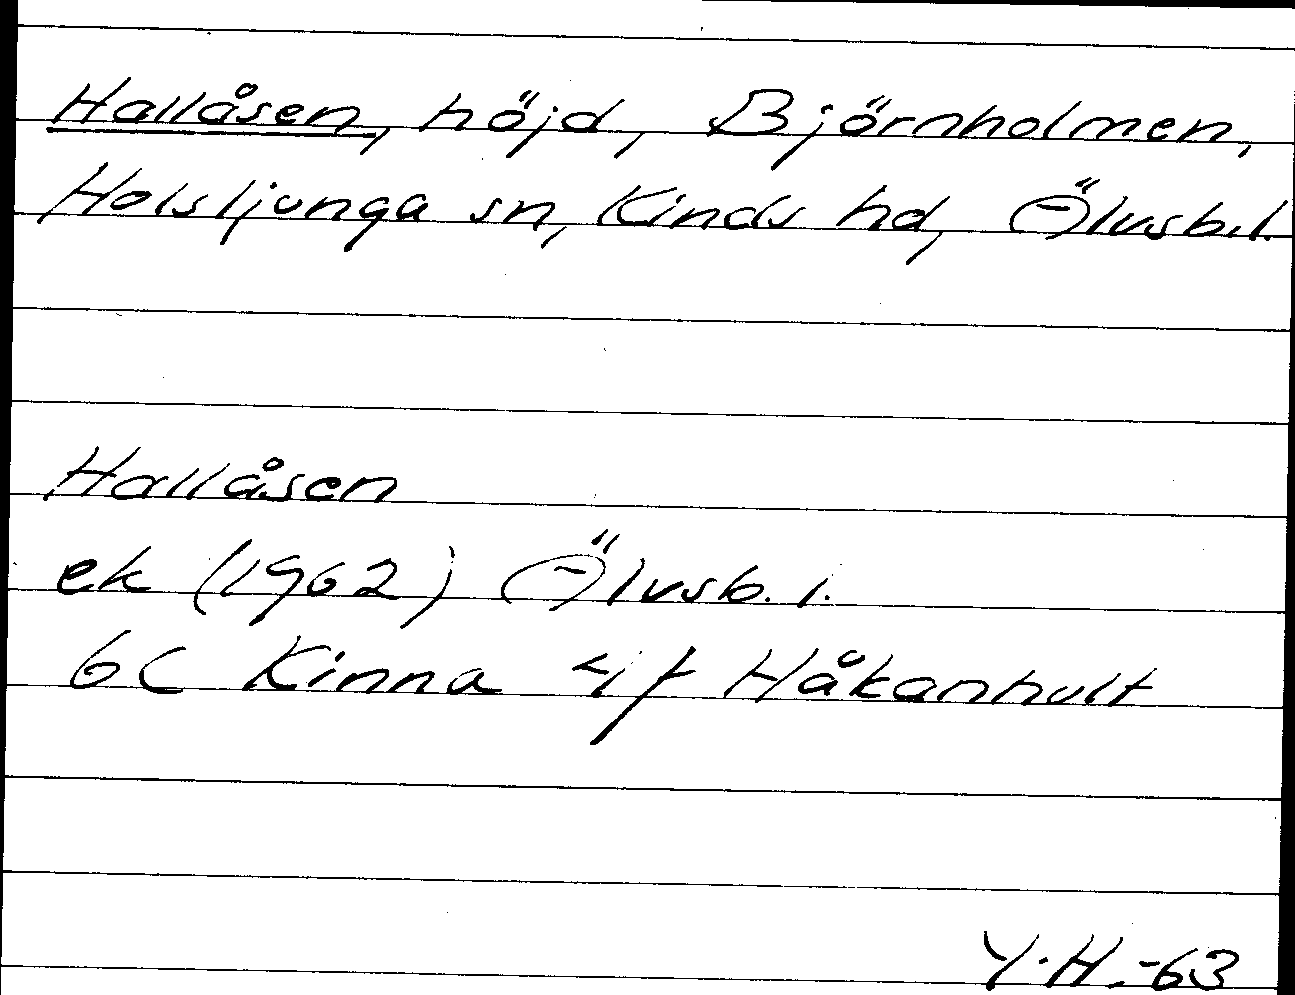 Hallåsen, höjd, Björnholmen,
Holsljunga sn, Kinds hd, Älvsb.l.
Hallåsen
ek (1962) Älvsb. l.
6C Kinna 4 f Håkanhult
Y.H.-63